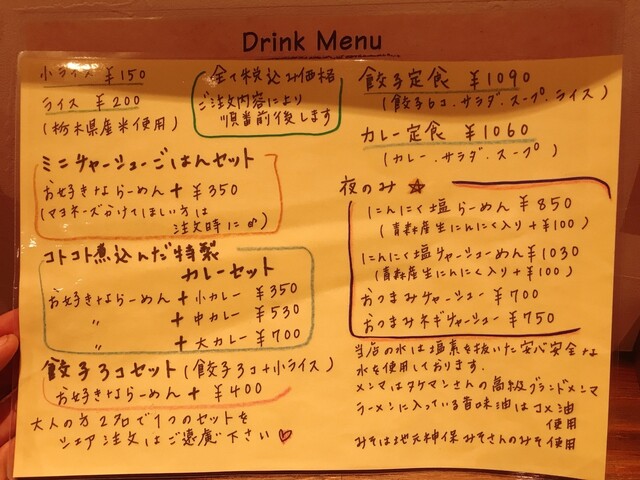 Drink Menu
小ライス ¥150
ライス ¥200
(栃木県産米使用)
全て税込み価格
ご注文内容により
順番前後します
ミニチャーシューごはんセット
お好きならーめん + ¥350
(マヨネーズかけてほしい方は
注文時に♂)
コトコト煮込んだ特製
カレーセット
お好きならーめん + 小カレー ¥350
〃 + 中カレー ¥530
〃 + 大カレー ¥700
餃子3コセット(餃子3コ+小ライス)
お好きならーめん + ¥400
大人の方2名で1つのセットを
シェア注文はご遠慮下さい♡
餃子定食 ¥1090
(餃子6コ・サラダ・スープ・ライス)
カレー定食 ¥1060
(カレー・サラダ・スープ)
夜のみ☆
にんにく塩らーめん ¥850
(青森産生にんにく入り+¥100)
にんにく塩チャーシューめん ¥1030
(青森産生にんにく入り+¥100)
おつまみチャーシュー ¥700
おつまみネギチャーシュー ¥750
当店の水は塩素を抜いた安心安全な
水を使用しております.
メンマはタケマンさんの高級グランドメンマ
ラーメンに入っている旨味油はコメ油
使用
みそは地元神保みそさんのみそ使用